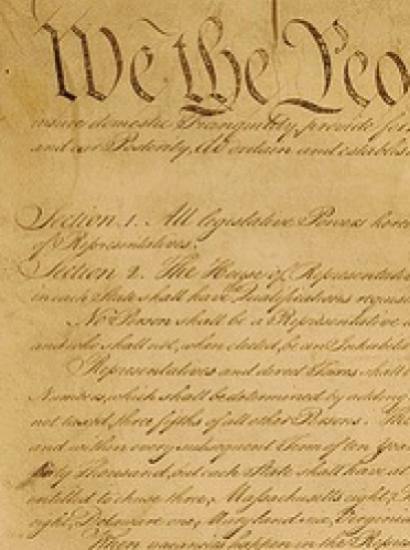 We the Peo
insure domestic Tranquility, provide for
and our Posterity, do ordain and establis
Section. 1. All legislative Powers here
of Representatives.
Section 2. The House of Representati
in each State shall have Qualifications requis
No Person shall be a Representative
and who shall not, when elected, be an Inhabita
Representatives and direct Taxes shall
Numbers, which shall be determined by adding
not taxed, three fifths of all other Persons. The
and within every subsequent Term of ten Year
thirty Thousand, but each State shall have at
entitled to chuse three, Massachusetts eight,
eight, Delaware one, Maryland six, Virginia
When vacancies happen in the Repres